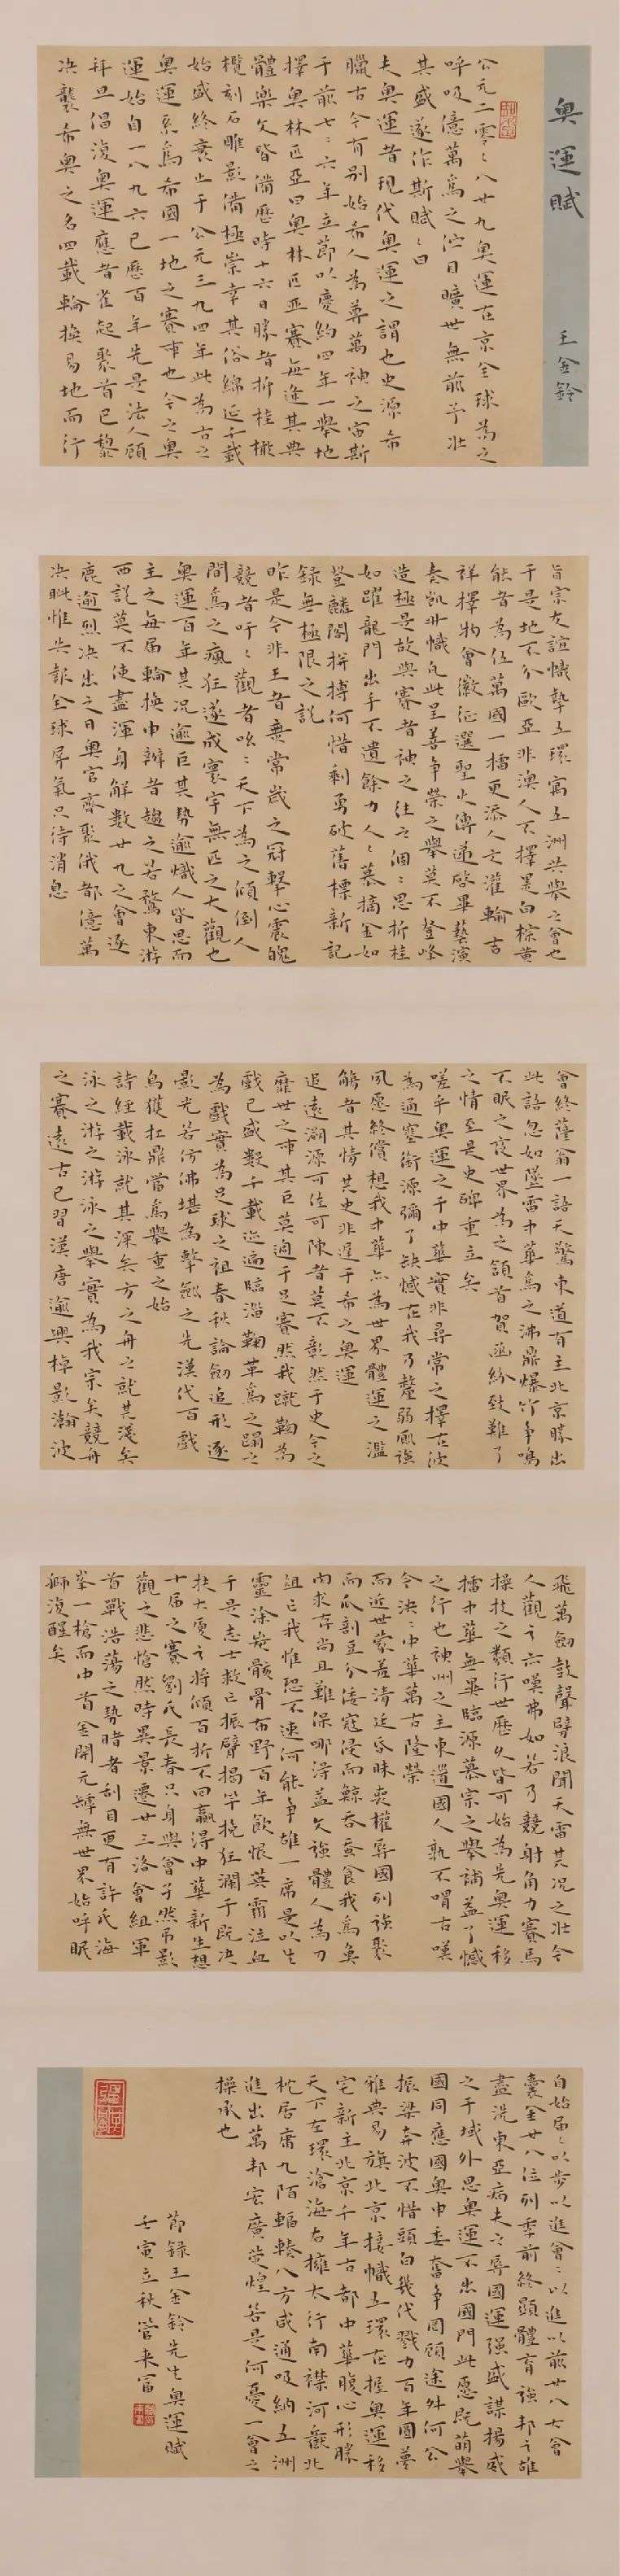 奥運賦
王金鈴
公元二零々八廿九奥運在京全球為之
呼吸億萬為之泞目曠世無前予壯
其盛遂作斯賦々曰
夫奥運者現代奥運之謂也史源希
臘古今有别始希人為尊萬神之宙斯
于前七七六年立節以慶約四年一舉地
擇奥林匹亞曰奥林匹亞賽每逢其典
體樂文皆備歷時十六日勝者折桂橄
欖刻石雕影備極崇幸其俗綿延千載
始盛終衰止于公元三九四年此為古之
奥運系為希國一地之賽事也今之奥
運始自一八九六已歷百年先是法人顧
拜旦倡復奥運應者雀起聚首巴黎
决襲希奥之名四載輪换易地而行
旨宗友誼幟摯五環寫五洲共舉之會也
于是地不分歐亞非澳人不擇黑白棕黄
能者為伍萬國一擂更添人文灌輪吉
祥擇物會徽征選聖火傳遞啓畢藝演
奏凯升幟凡此呈善争榮之舉莫不登峰
造極是故與賽者神之往之個々思折桂
如躍龍門出手不遺餘力人々慕摘金如
登麟閣拼搏何惜剩勇破舊標新記
録無極限之説
昨是今非王者無常歲之冠擊心震魄
競者吁々觀者吆々天下為之傾倒人
間為之瘋狂遂成寰宇無匹之大觀也
奥運百年其况逾巨其勢逾熾人皆思而
主之每届輪换申辦者趨之若鶩東游
西説莫不使盡渾身解數廿九之會逐
鹿逾烈决出之日奥官齊聚俄都億萬
决眦惟共訴全球屏氣只待消息
會終薩翁一語天驚東道有主北京勝出
此語忽如墜雷中華為之沸鼎爆竹争鳴
不眠之夜世界為之頷首賀函紛致難了
之情至是史碑重立矣
嗟乎奥運之于中華實非尋常之擇在彼
為通塞銜源彌了缺憾在我乃釐弱圖强
夙愿終償想我中華亦為世界體運之濫
觴者其情其史非遲于希之奥運
追遠溯源可佐可陳者莫不彰然于史今之
靡世之事其巨莫過于足賽然我蹴鞠為
戲已盛數千載巡遍臨淄鞠革為之蹋之
為戲實為足球之祖春秋論劍追形逐
影光若仿佛堪為擊劍之先漢代百戲
烏獲扛鼎當為舉重之始
詩經載泳就其深矣方之舟之就其淺矣
泳之游之游泳之舉實為我宗矣競舟
之賽遠古已習漢唐逾興棹影瀚波
飛萬劍鼓聲劈浪聞天雷其况之壯今
人觀之亦嘆弗如若乃競射角力賽馬
操技之類行世歷久皆可始為先奥運移
擂中華無畢臨源慕宗之舉補益了憾
之行也神州之主東道國人孰不喟古嘆
今決々中華萬古隆榮
而近世蒙羞清廷昏昧喪權辱國列强聚
而瓜剖豆分倭寇侵而鯨吞蠶食我為魚
肉求存尚且難保哪得益欠强體人為刀
俎亡我惟恐不速何能争雄一席是以生
靈涂炭骸骨布野百年飲恨英霜泣血
于是志士救亡振臂揭竿挽狂瀾于既决
扶大厦之將傾百折不回贏得中華新生想
十届之賽劉氏長春只身與會孑然吊影
觀之悲愴然時異景遷廿三洛會組軍
首戰浩蕩之勢睹者刮目更有許氏海
峯一槍而中首金開元罅無世界始呼眠
獅復醒矣
自始届々以步以進會々以進以前廿八大會
囊金廿八位列季前終顯體育强邦之雄
盡洗東亞病夫之辱國運强盛謀揚威
之于域外思奥運不出國門此愿既萌舉
國同應國奥申委奮争罔顧途舛何公
振梁奔波不惜頭白幾代戮力百年圓夢
雅典易旗北京接幟五環在握奥運移
宅新主北京千年古都中華腹心形勝
天下左環滄海右擁太行南襟河嶽北
枕居庸九陌輻輳八方咸通吸納五洲
進出萬邦宏廣熒煌若是何憂一會之
操承也
節録王金鈴先生奥運賦
壬寅立秋管来富